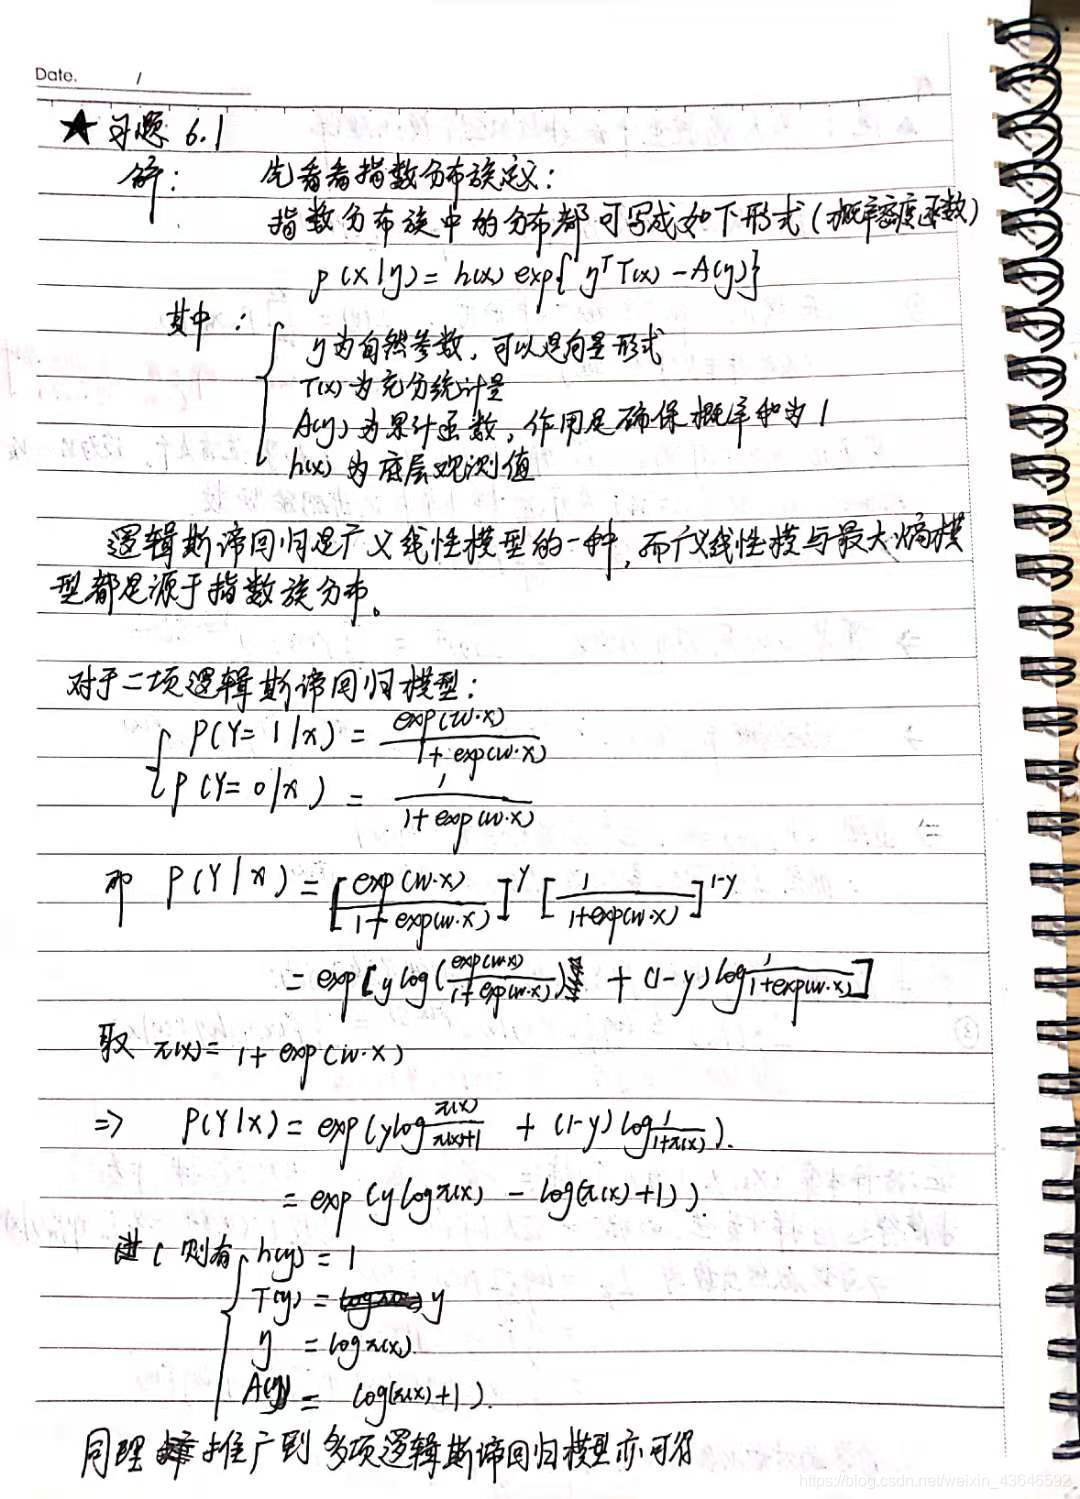 Date. /
★ 习题 6.1
解： 先看看指数分布族定义：
指数分布族中的分布都可写成如下形式(概率密度函数)
p(x|η) = h(x) exp{ η^T T(x) - A(η)}
其中：
η为自然参数，可以是向量形式
T(x)为充分统计量
A(η)为累计函数，作用是确保概率和为1
h(x)为底层观测值
逻辑斯谛回归是广义线性模型的一种，而广义线性模与最大熵模
型都是源于指数族分布。
对于二项逻辑斯谛回归模型：
P(Y=1|x) = exp(w·x) / 1+exp(w·x)
P(Y=0|x) = 1 / 1+exp(w·x)
即 P(Y|x) = [exp(w·x) / 1+exp(w·x)]^y [1 / 1+exp(w·x)]^1-y
= exp[y log(exp(w·x) / 1+exp(w·x)) + (1-y) log 1 / 1+exp(w·x)]
取 π(x) = 1+exp(w·x)
⇒ P(Y|x) = exp(y log π(x) / π(x)+1 + (1-y) log 1 / 1+π(x)).
= exp(y log π(x) - log(π(x)+1)).
则有 h(y) = 1
T(y) = y
η = log π(x).
A(η) = log(π(x)+1).
同理 推广到多项逻辑斯谛回归模型亦可得
https://blog.csdn.net/weixin_43646592